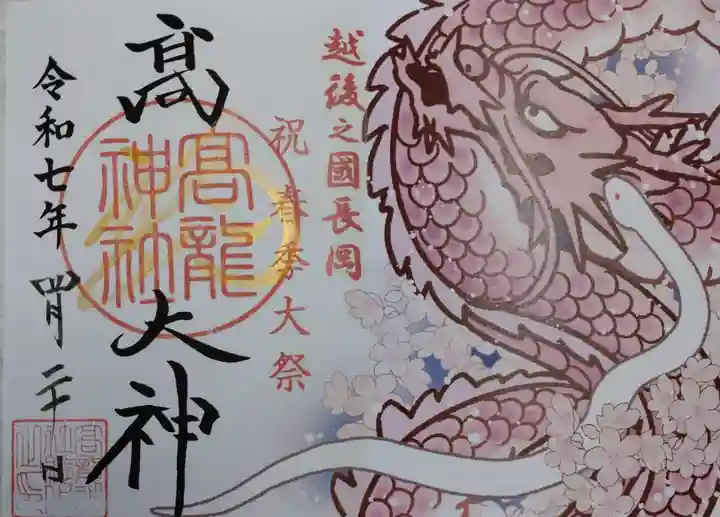 越後之國長岡
祝春季大祭
髙
大神
髙龍
神社
令和七年四月二十日